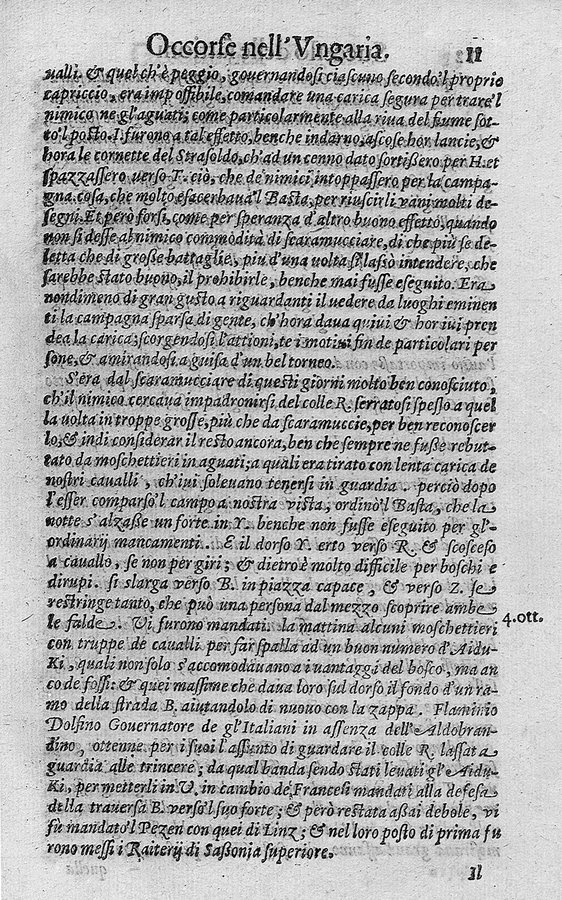 Occorſe nell'Vngaria. 11
ualli. & quel ch'è peggio, gouernandoſi ciaſcuno ſecondo'l proprio
capriccio, era impoſſibile, comandare una carica ſegura per trare'l
nimico ne gl'aguati; come particolarmente alla riua del fiume ſot-
to'l poſto. I. furono a tal effetto, benche indarno, aſcoſe hor lancie, &
hora le cornette del Straſoldo, ch'ad un cenno dato ſortiſſero per H. et
ſpazzaſſero uerſo T. ciò, che de'nimici intoppaſſero per la campa-
gna. coſa, che molto eſacerbaua'l Baſta, per riuſcirli vani molti de-
ſegni. Et però forſi, come per ſperanza d'altro buono effetto, quando
non ſi deſſe al nimico commodità di ſcaramucciare, di che più ſe de-
letta che di groſſe battaglie, più d'una volta ſi laſsò intendere, che
ſarebbe ſtato buono, il prohibirle, benche mai fuſſe eſeguito. Era
nondimeno di gran guſto a riguardanti il uedere da luoghi eminen
ti la campagna ſparſa di gente, ch'hora daua quiui & hor iui pren
dea la carica; ſcorgendoſi l'attioni, te i motiui fin de particolari per
ſone, & amirandoſi a guiſa d'un bel torneo.
S'era dal ſcaramucciare di queſti giorni molto ben conoſciuto,
ch'il nimico cercaua impadronirſi del colle R. ſerratoſi ſpeſſo a quel
la uolta in troppe groſſe, più che da ſcaramuccie, per ben reconoſcer
lo, & indi conſiderar il reſto ancora, ben che ſempre ne fuſſe rebut-
tato da moſchettieri in aguati; a quali era tirato con lenta carica de
noſtri cavalli, ch'iui ſolevano tenerſi in guardia. perciò dopo
l'eſſer comparſo'l campo a noſtra viſta, ordinò'l Baſta, che la
notte s'alzaſſe un forte in Y. benche non fuſſe eſeguito per gl'
ordinarij mancamenti. E il dorſo Y. erto verſo R. & ſcoſceſo
a cauallo, ſe non per giri; & dietro è molto difficile per boſchi e
dirupi. ſi slarga verſo B. in piazza capace, & verſo Z. ſe
reſtringe tanto, che può una perſona dal mezzo ſcoprire ambe
le falde. Vi furono mandati la mattina alcuni moſchettieri 4. ott.
con truppe de caualli per far ſpalla ad un buon numero d'Aidu-
Ki, quali non ſolo s'accomodauano a i vantaggi del boſco, ma an
co de foſſi: & quei maſſime che daua loro ſul dorſo il fondo d'un ra-
mo della ſtrada B. aiutandolo di nuouo con la zappa. Flaminio
Dolfino Gouernatore de gl'Italiani in aſſenza dell'Aldobran-
dino, ottenne per i ſuoi l'aſſunto di guardare il colle R. laſſata
guardia alle trincere; da qual banda ſendo ſtati leuati gl'Aidu-
Ki, per metterli in V. in cambio de Franceſi mandati alla defeſa
della trauerſa B. verſo'l ſuo forte; & però reſtata aſſai debole, vi
fù mandato'l Pezen con quei di Linz; & nel loro poſto di prima fu
rono meſſi i Raiterij di Saſſonia ſuperiore.
Il